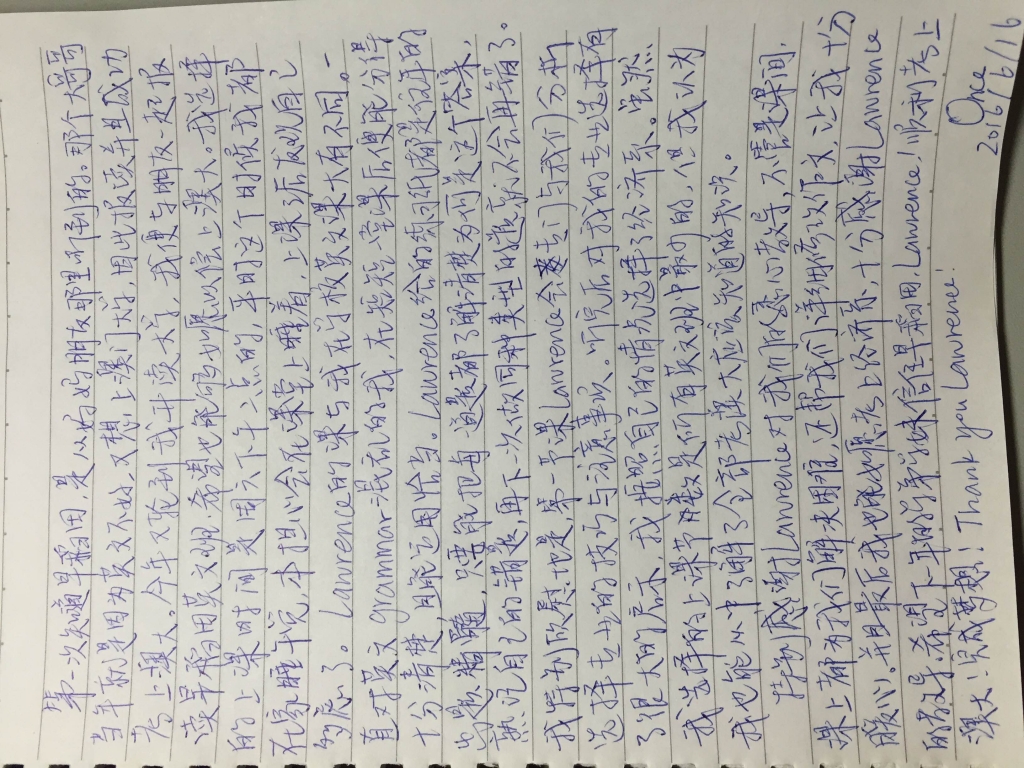 第一次知道早稻田，是从好朋友那里听到的。那个大哥哥
当年就是因为英文不好，又想上澳门大学，因此报读并且成功
考上澳大。今年又轮到我升读大学，我便与朋友一起报
读早稻田英文班，希望也能够如愿以偿上澳大。我选择
的上课时间是周六下午六点的，平时这个时候我都
在家睡午觉，本担心会在课堂上睡着，上课之后发现自己
多虑了。Lawrence的课与我在学校英文课大有不同。一
直对英文grammar混乱的我，在听完一堂课后便能分得
十分清楚，明确运用恰当。Lawrence给的练习纸都是往年的
出题精髓，只要能把每一题都了解清楚为何是这个答案，
熟记自己的错处，再下一次做同种类型的题就不会再错了。
我特别欣慰的是，第一节课Lawrence会专门与我们分析
选择专业的技巧与注意事项。听完后对我的专业选择有
了很大的启示，我按照自己的情况选择了经济系。虽然
我选择的上课节数是所有英文班中最少的，但我认为
我也能从中了解了全部考澳大应该知道的知识。
特别感谢Lawrence对我们的悉心教导，不管是课间，
课上都为我们解决问题，还帮我们详细修改作文，让我十分
暖心。并且最后我也如愿考上经济系，十分感谢Lawrence
的教导。希望下一年的学弟学妹信早稻田，Lawrence！顺利考上
澳大！完成梦想！Thank you Lawrence!
Once
2016/6/16